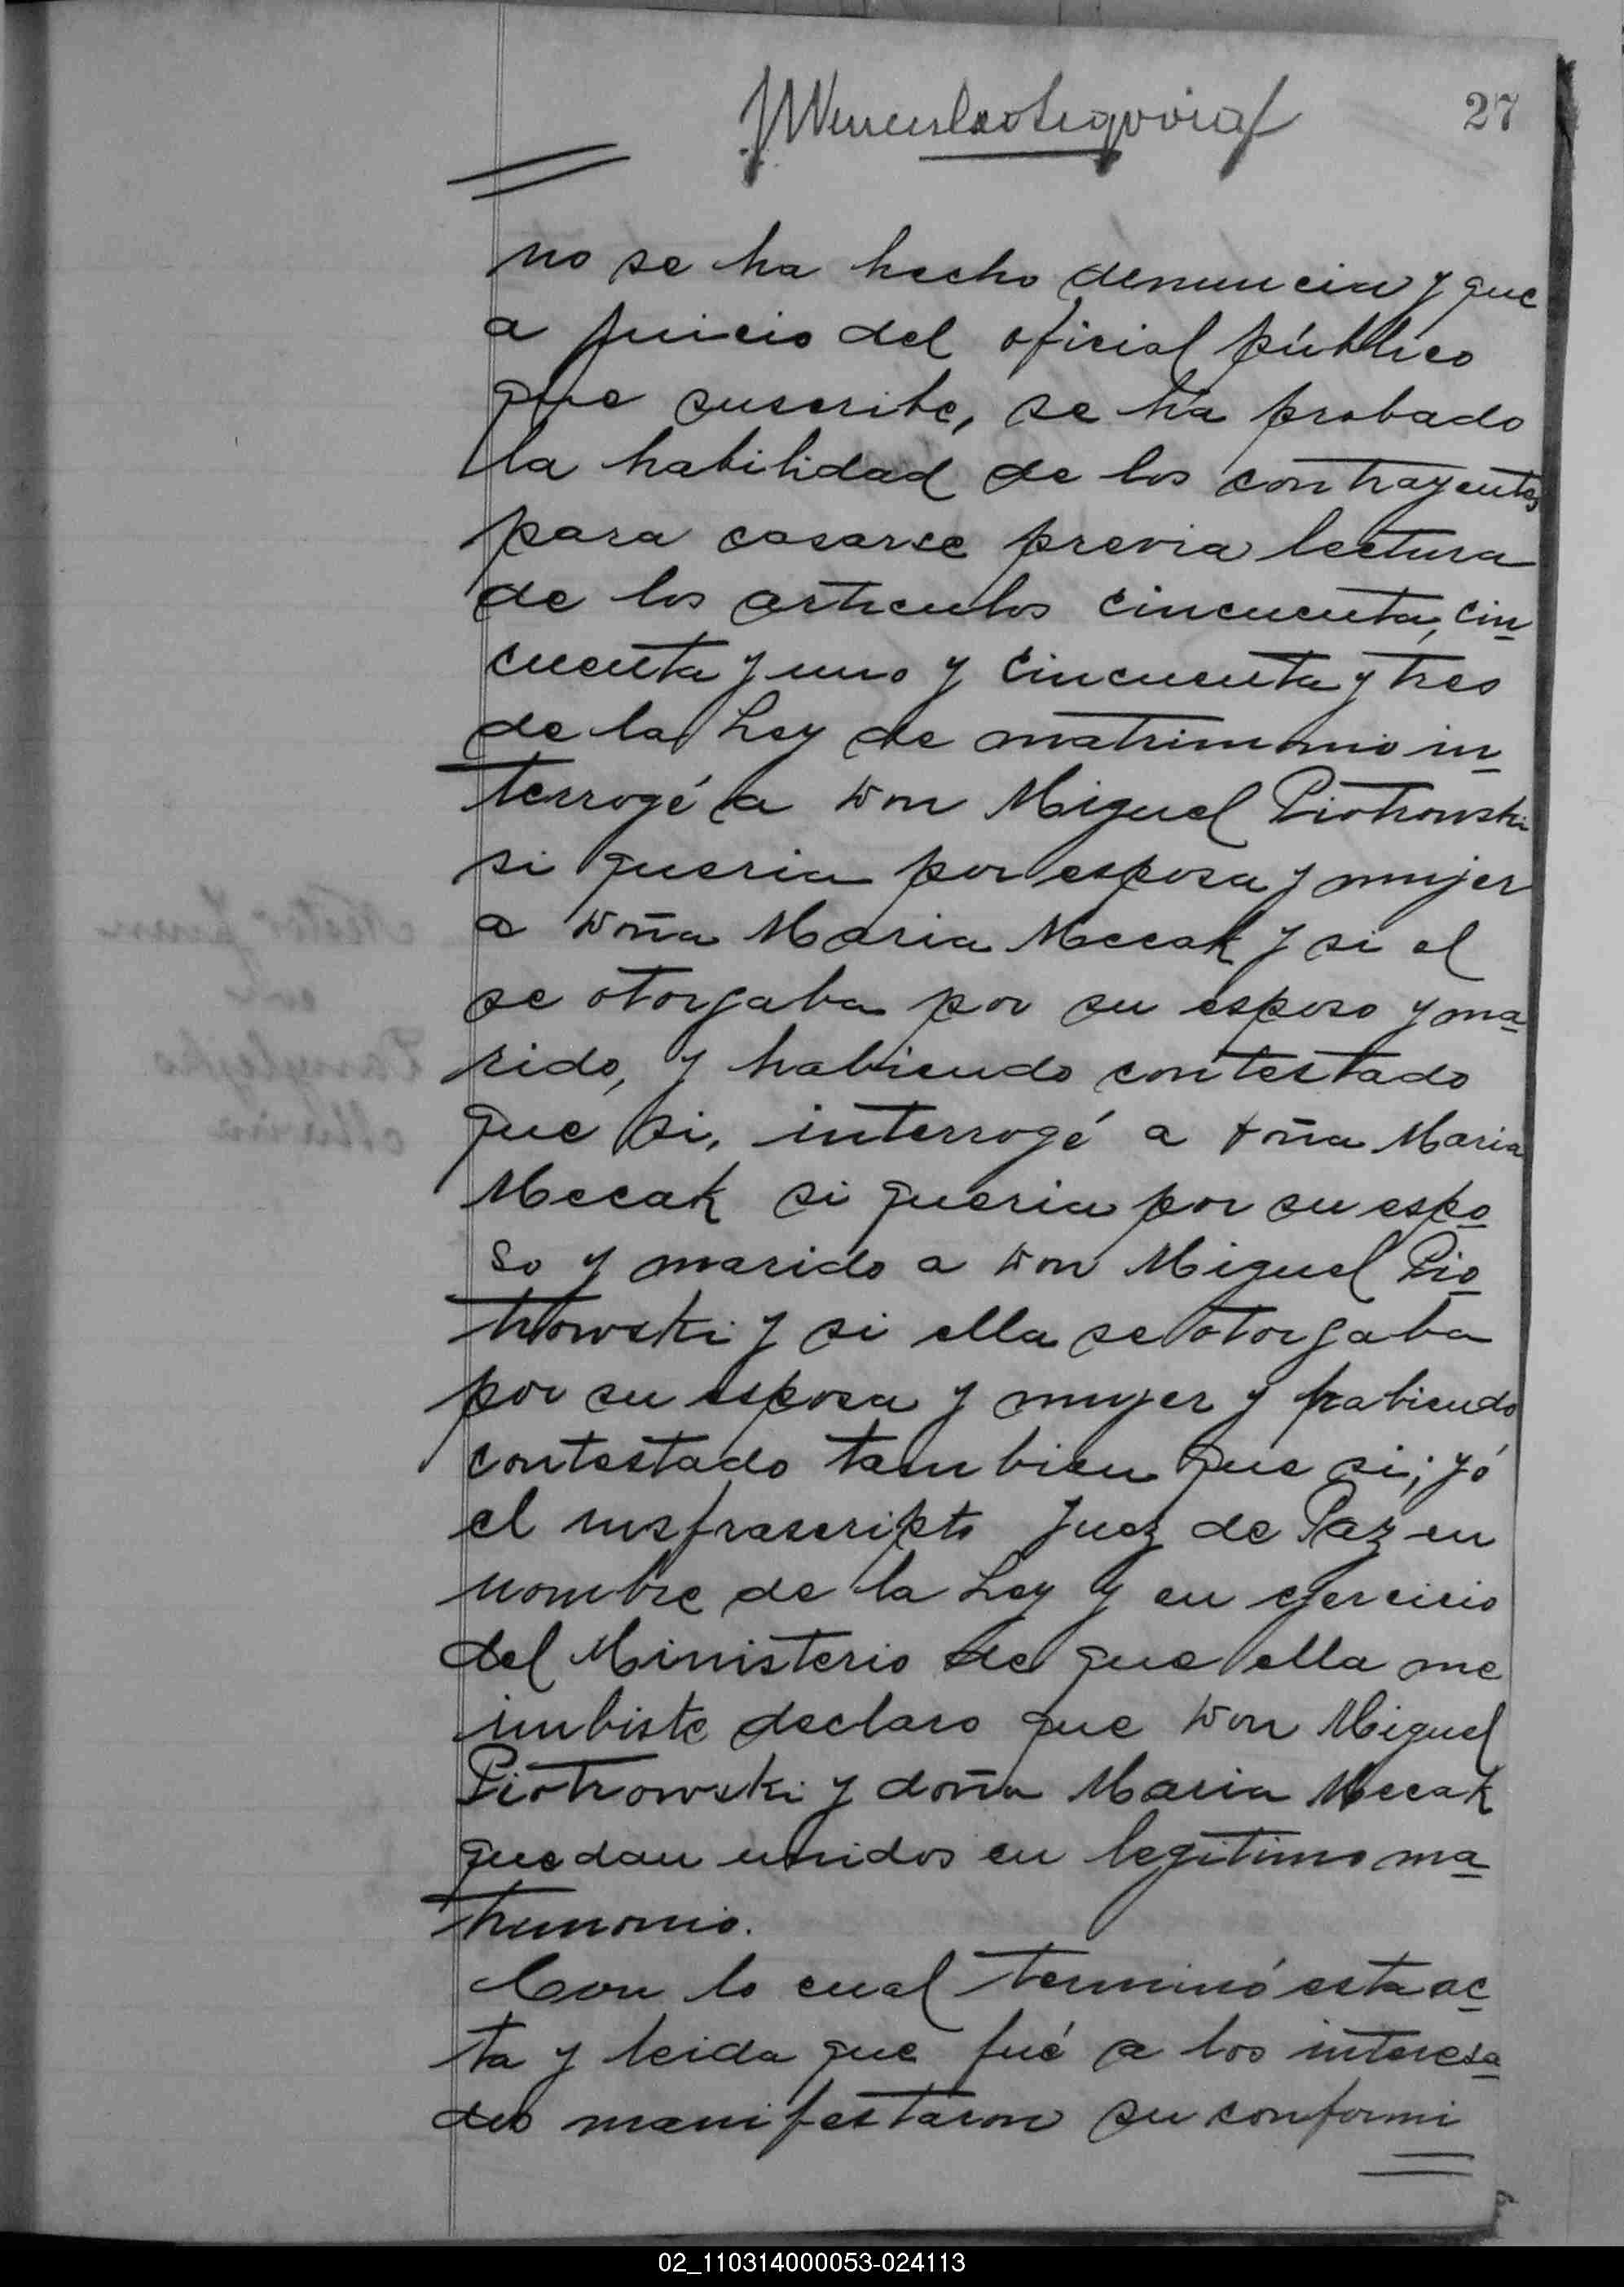 27
no se ha hecho denuncia y que
a juicio del oficial público
que suscribe, se ha probado
la habilidad de los contrayentes
para casarse previa lectura
de los articulos cincuenta, cin
cuenta y uno y cincuenta y tres
de la Ley de matrimonio in
terrogé a Don Miguel Piotrowski
si queria por esposa y mujer
a Doña Maria Mecak y si el
se otorgaba por su esposo y ma
rido, y habiendo contestado
que si, interrogé a doña Maria
Mecak si queria por su espo
so y marido a Don Miguel Pio
trowski y si ella se otorgaba
por su esposa y mujer y habiendo
contestado tambien que si; yó
el insfrascripto Juez de Paz en
nombre de la Ley y en ejercicio
del Ministerio de que ella me
imbiste declaro que Don Miguel
Piotrowski y doña Maria Mecak
quedan unidos en legitimo ma
trimonio.
Con lo cual terminó esta ac
ta y leida que fué a los interesa
dos manifestaron su conformi
02_110314000053-024113